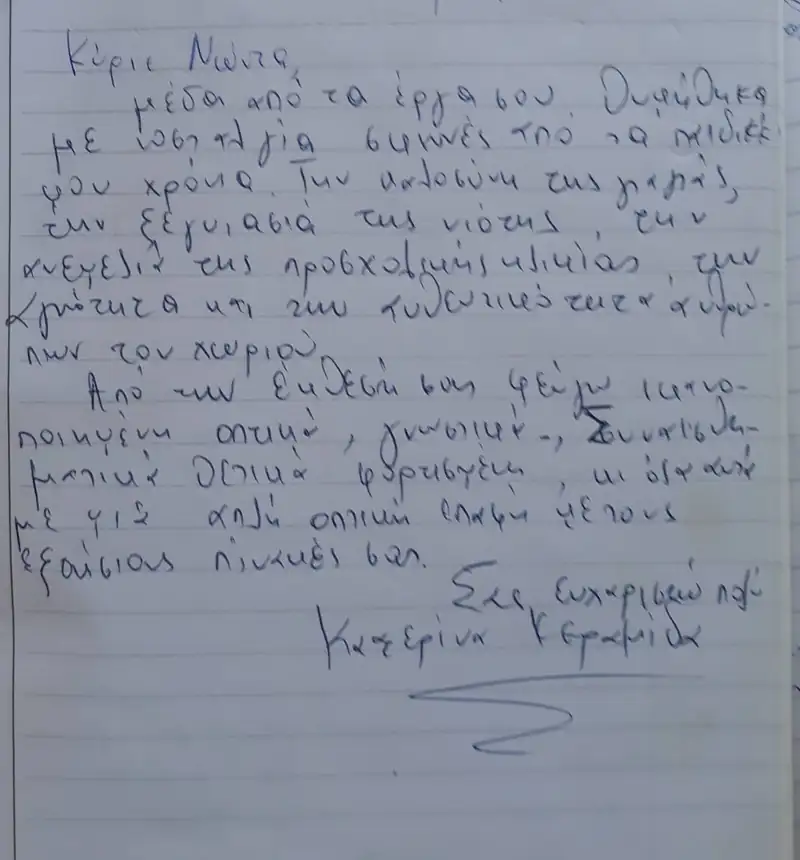 Κύριε Νώντα,
μέσα από τα έργα σου θυμήθηκα
με νοσταλγία σκηνές από τα παιδικά
μου χρόνια. Την καλοσύνη της γιαγιάς,
την ξεγνιασιά της νιότης, την
ανεμελιά της προσχολικής ηλικίας, την
αγνότητα και την αυθεντικότητα ανθρώ-
πων του χωριού.
Από την έκθεσή σας φεύγω ικανο-
ποιημένη οπτικά, γνωστικά, συναισθη-
ματικά θετικά φορτισμένη, κι όλα αυτά
με μια απλή οπτική επαφή με τους
εξαίσιους πίνακές σας.
Σας ευχαριστώ πολύ
Κατερίνα Κεραμίδα